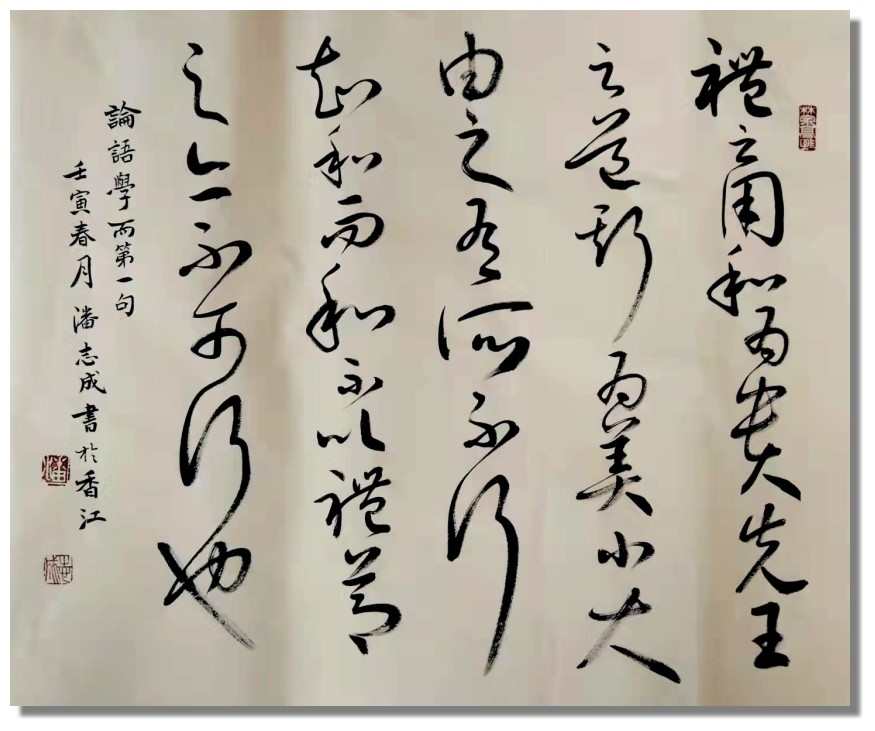 禮之用和為貴先王
之道斯為美小大
由之有所不行
知和而和不以禮節
之亦不可行也
論語學而第一句
壬寅春月潘志成書於香江